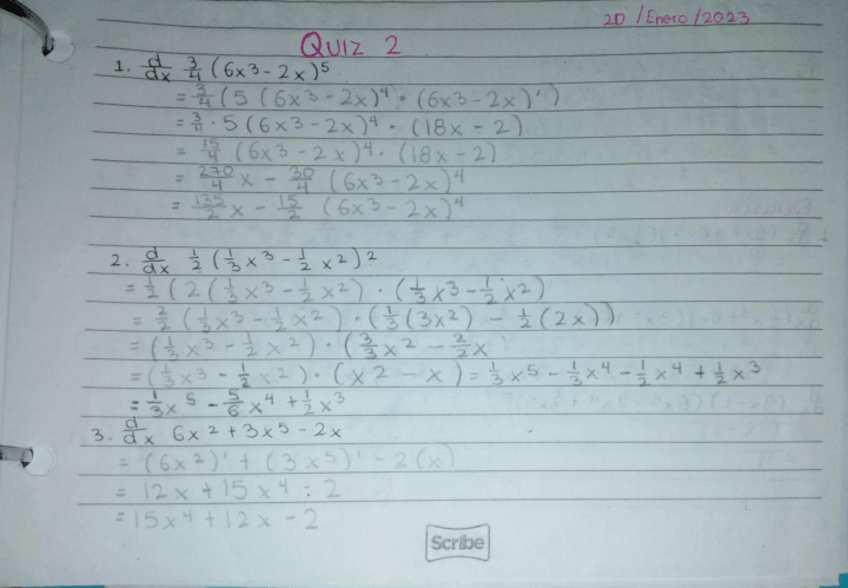 20 /Enero/2023
QUIZ 2
1. d/dx 3/4 (6x3 - 2x)^5
= 3/4 (5 (6x3 - 2x)^4 · (6x3 - 2x)')
= 3/4 · 5 (6x3 - 2x)^4 · (18x - 2)
= 15/4 (6x3 - 2x)^4 · (18x - 2)
= 270/4 x - 30/4 (6x3 - 2x)^4
= 135/2 x - 15/2 (6x3 - 2x)^4
2. d/dx 1/2 (1/3 x^3 - 1/2 x^2)^2
= 1/2 (2 (1/3 x^3 - 1/2 x^2) · (1/3 x^3 - 1/2 x^2)
= 2/2 (1/3 x^3 - 1/2 x^2) · (1/3 (3x^2) - 1/2 (2x))
= (1/3 x^3 - 1/2 x^2) · (3/3 x^2 - 2/2 x
= (1/3 x^3 - 1/2 x^2) · (x^2 - x) = 1/3 x^5 - 1/3 x^4 - 1/2 x^4 + 1/2 x^3
= 1/3 x^5 - 5/6 x^4 + 1/2 x^3
3. d/dx 6x^2 + 3x^5 - 2x
= (6x^2)' + (3x^5)' - 2(x)
= 12x + 15x^4 - 2
= 15x^4 + 12x - 2
Scribe